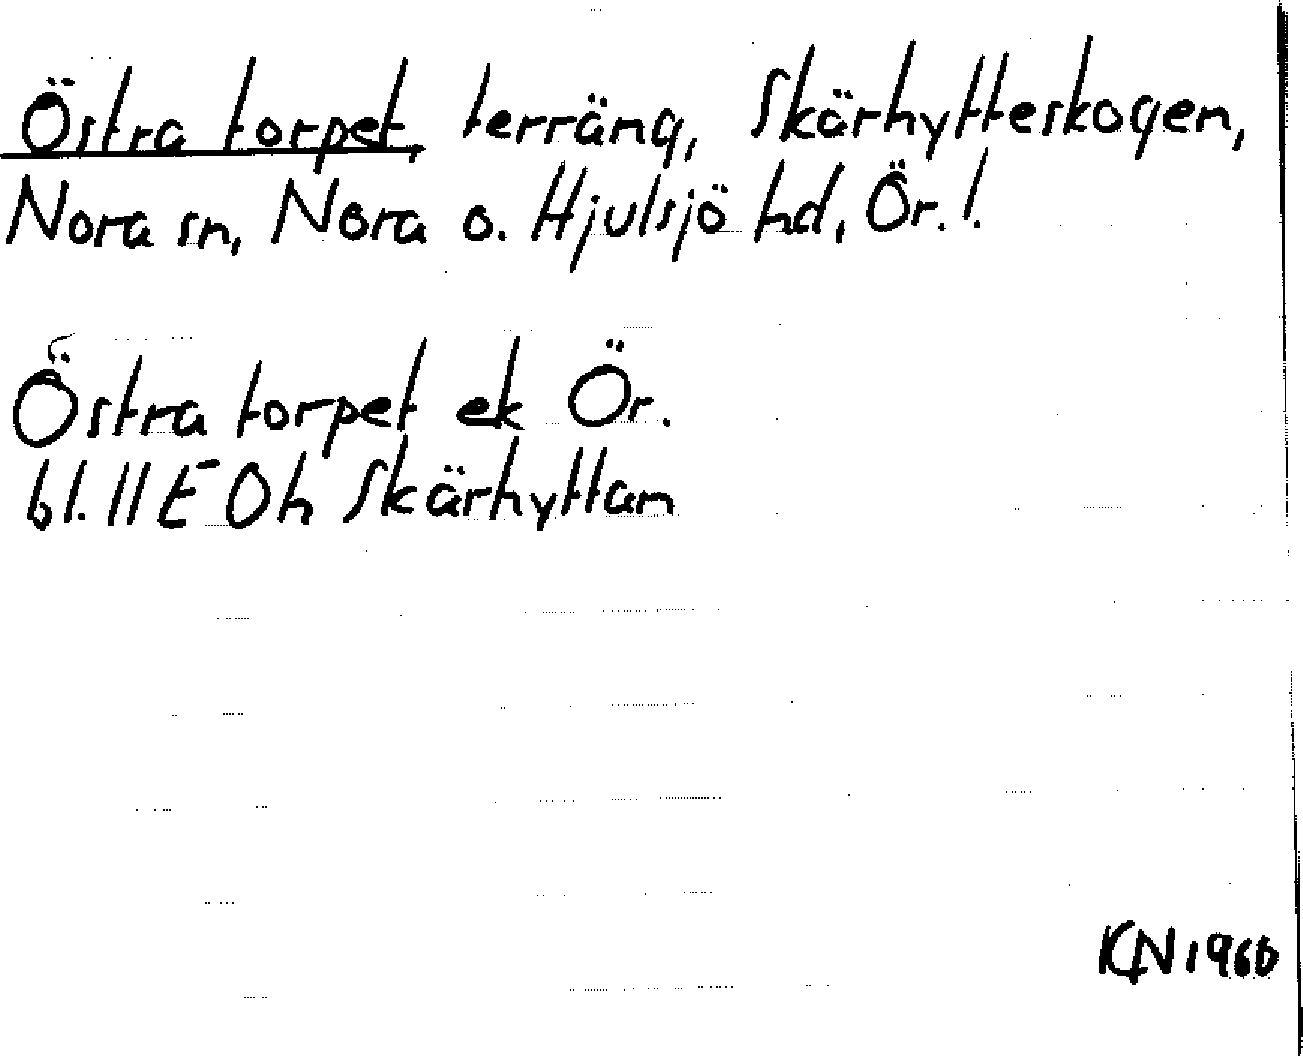 Östra torpet, terräng, Skärhytteskogen,
Nora sn, Nora o. Hjulsjö hd, Ör. l.
Östra torpet ek Ör.
bl. 11E 0h Skärhyttan
KN 1966